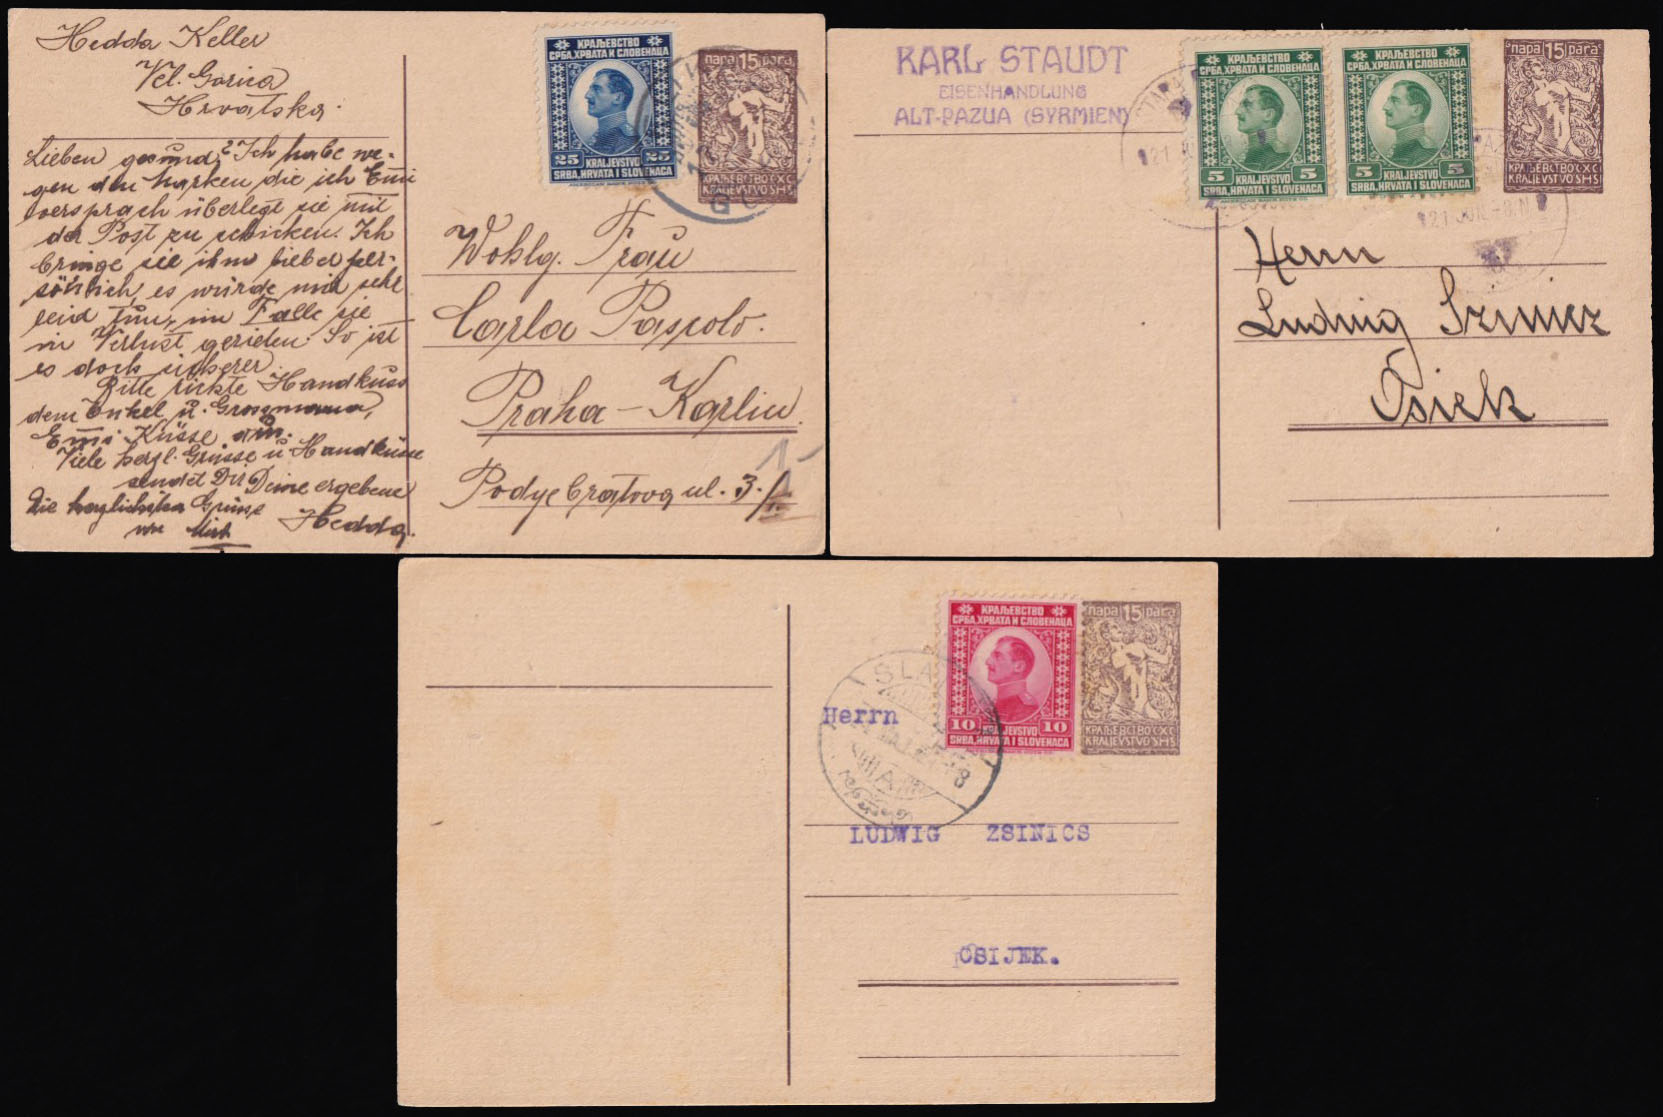 Hedda Keller
Vel. Gorica
Hrvatska.
Lieben gesund? Ich habe we-
gen den Marken die ich Emi
versprach überlegt sie mit
der Post zu schicken. Ich
bringe sie ihm lieber per-
sönlich, es würde mir sehr
leid tun, im Falle sie
in Verlust gerieten. So ist
es doch sicherer
Bitte richte Handkuss
dem Onkel u. Grossmama,
Emi Küsse
Viele herzl. Grüsse u Handküsse
sendet Dir Deine ergebene
Hedda.
Die herzlichsten Grüsse
von
КРАЉЕВСТВО
СРБА, ХРВАТА И СЛОВЕНАЦА
25 25
KRALJEVSTVO
SRBA, HRVATA I SLOVENACA
пара 15 para
КРАЉЕВСТВО С Х С
KRALJEVSTVO SHS
Wohlg. Frau
Carla Paspolo.
Praha - Karlin
Podjebratova ul. 3./I
KARL STAUDT
EISENHANDLUNG
ALT-PAZUA (SYRMIEN)
КРАЉЕВСТВО
СРБА, ХРВАТА И СЛОВЕНАЦА
5 5
KRALJEVSTVO
SRBA, HRVATA I SLOVENACA
КРАЉЕВСТВО
СРБА, ХРВАТА И СЛОВЕНАЦА
5 5
KRALJEVSTVO
SRBA, HRVATA I SLOVENACA
пара 15 para
КРАЉЕВСТВО С Х С
KRALJEVSTVO SHS
21 JUN.-8.N
Herrn
Ludwig Szinicz
Osiek
КРАЉЕВСТВО
СРБА, ХРВАТА И СЛОВЕНАЦА
10 10
KRALJEVSTVO
SRBA, HRVATA I SLOVENACA
пара 15 para
КРАЉЕВСТВО С Х С
KRALJEVSTVO SHS
SLA
Herrn
LUDWIG ZSINICS
OSIJEK.